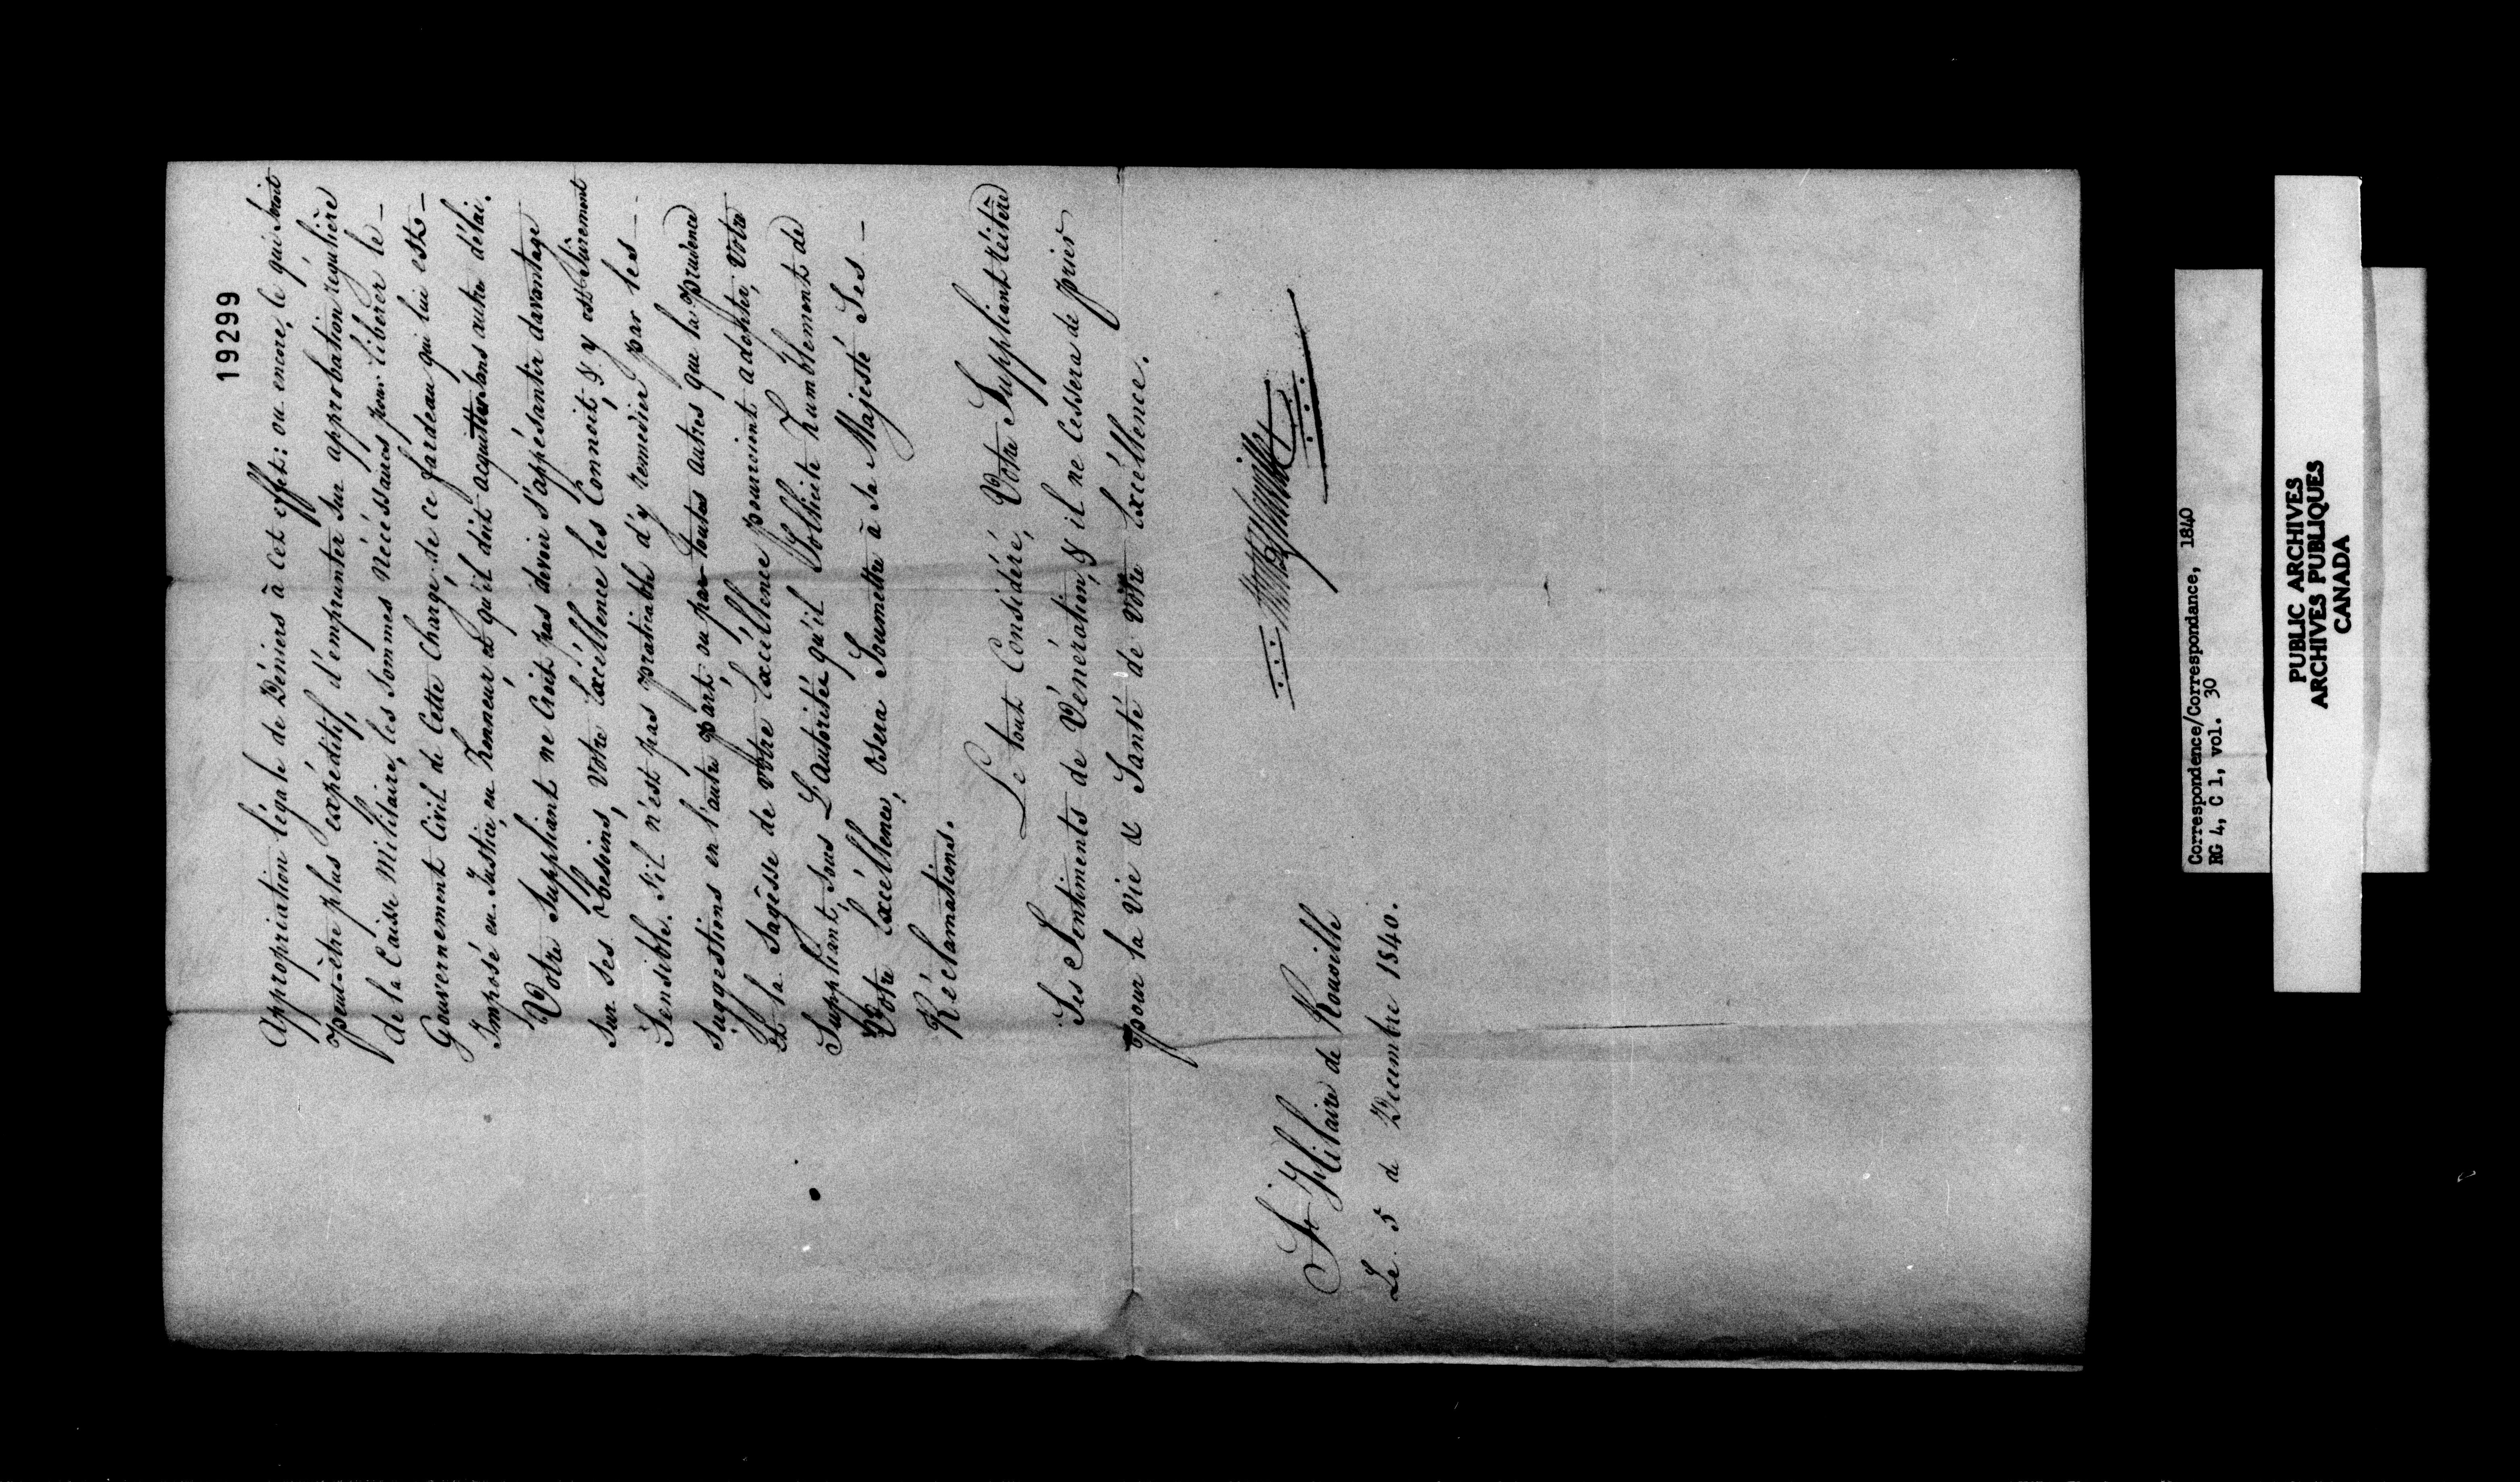 19299
Appropriation légale de Déniers à cet effet; ou encore, ce qui seroit
peut-être plus expéditif, d'emprunter sur approbation régulière
de la Caisse Militaire, les Sommes Nécéssaires pour libérer le
Gouvernement Civil de Cette Charge, de ce fardeau qui lui est
Imposé en Justice, en honneur, et qu'il doit acquitter sans autre délai.
Votre Suppliant ne Croit pas devoir s'appésantir davantage
sur ses besoins, Votre Excéllence les Connoit, & y est Sûrement
Sensible. S'il n'est pas praticable d'y remédier par les
suggestions en l'autre part, ou par toutes autres que la prudence
Et la Sagésse de Vôtre Excéllence pourroient adopter, Votre
Suppliant, sous L'autoritée qu'il Sollicite humblement de
Vôtre Excéllence, osera Soumettre à Sa Majesté Ses
Réclamations.
Le tout Considéré, Votre Suppliant réitère
Ses Sentiments de Vénération, & il ne Cessera de prier
pour la Vie & Santé de Vôtre Excéllence.
St Hilaire de Rouville
Le 5 de Decembre 1840.
Correspondence/Correspondance, 1840
RG 4, C 1, vol. 30
PUBLIC ARCHIVES
ARCHIVES PUBLIQUES
CANADA